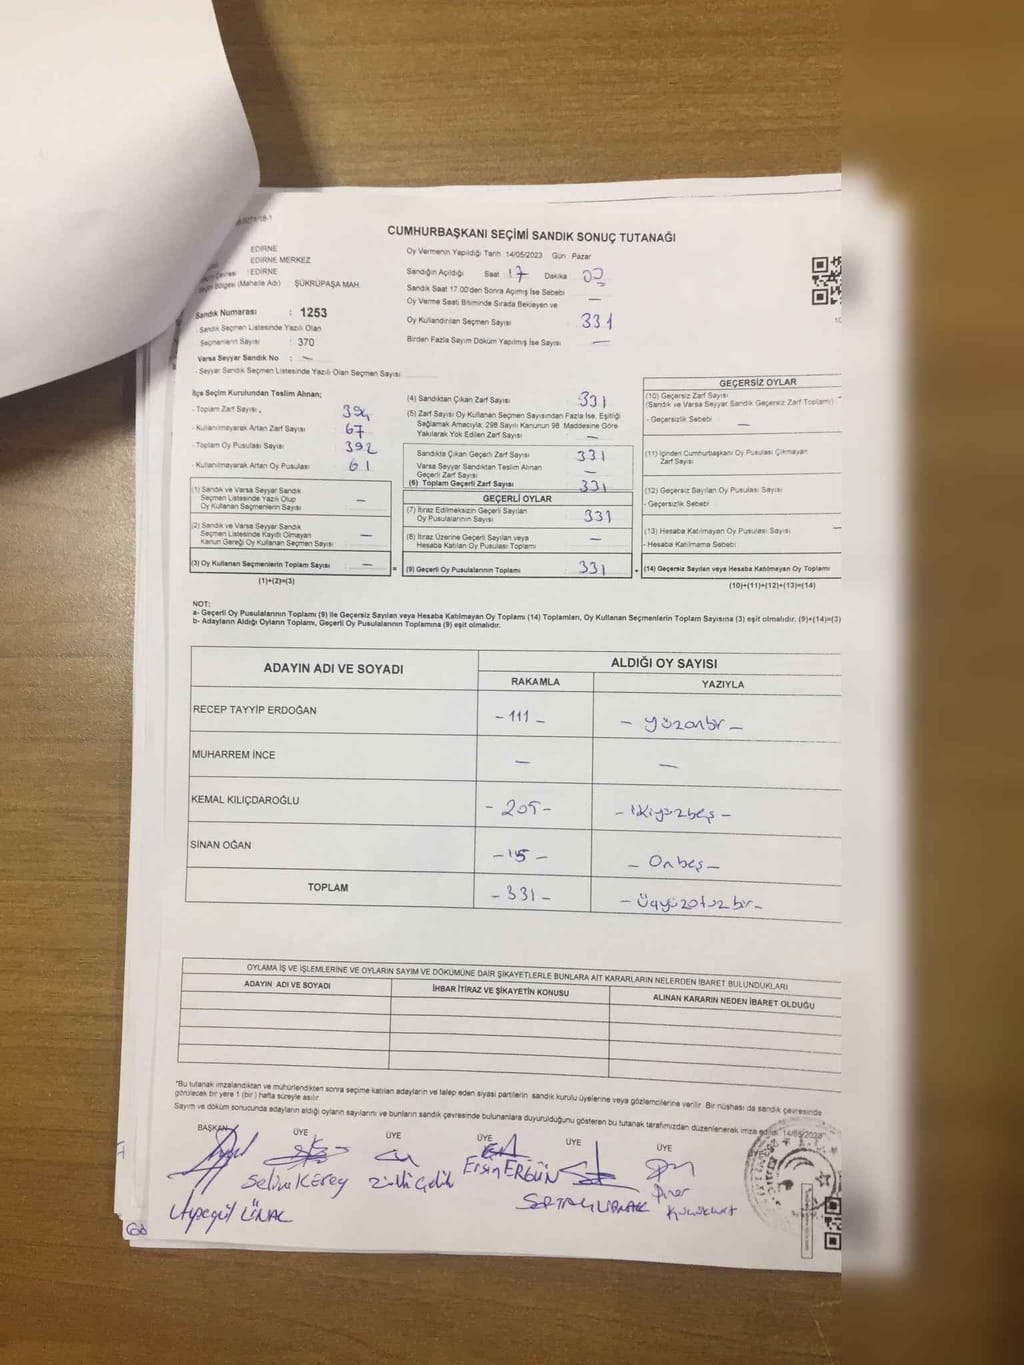 CUMHURBAŞKANI SEÇİMİ SANDIK SONUÇ TUTANAĞI
EDİRNE
EDİRNE MERKEZ
Çevresi : EDİRNE
Bölgesi (Mahalle Adı) ŞÜKRÜPAŞA MAH.
Sandık Numarası : 1253
- Sandık Seçmen Listesinde Yazılı Olan
Seçmenlerin Sayısı : 370
Varsa Seyyar Sandık No : —
- Seyyar Sandık Seçmen Listesinde Yazılı Olan Seçmen Sayısı :
Oy Vermenin Yapıldığı Tarih : 14/05/2023 Gün : Pazar
Sandığın Açıldığı Saat 17 Dakika 02
Sandık Saat 17.00'den Sonra Açımış İse Sebebi
Oy Verme Saati Bitiminde Sırada Bekleyen ve —
Oy Kullandırılan Seçmen Sayısı 331
Birden Fazla Sayım Döküm Yapılmış İse Sayısı —
İlçe Seçim Kurulundan Teslim Alınan;
- Toplam Zarf Sayısı 394
- Kullanılmayarak Artan Zarf Sayısı 67
- Toplam Oy Pusulası Sayısı 392
- Kullanılmayarak Artan Oy Pusulası 61
(1) Sandık ve Varsa Seyyar Sandık
Seçmen Listesinde Yazılı Olup
Oy Kullanan Seçmenlerin Sayısı —
(2) Sandık ve Varsa Seyyar Sandık
Seçmen Listesinde Kayıtlı Olmayan
Kanun Gereği Oy Kullanan Seçmen Sayısı —
(3) Oy Kullanan Seçmenlerin Toplam Sayısı — =
(1)+(2)=(3)
(4) Sandıktan Çıkan Zarf Sayısı 331
(5) Zarf Sayısı Oy Kullanan Seçmen Sayısından Fazla İse, Eşitliği
Sağlamak Amacıyla; 298 Sayılı Kanunun 98. Maddesine Göre
Yakılarak Yok Edilen Zarf Sayısı —
Sandıkta Çıkan Geçerli Zarf Sayısı 331
Varsa Seyyar Sandıktan Teslim Alınan
Geçerli Zarf Sayısı —
(6) Toplam Geçerli Zarf Sayısı 331
GEÇERLİ OYLAR
(7) İtiraz Edilmeksizin Geçerli Sayılan
Oy Pusulalarının Sayısı 331
(8) İtiraz Üzerine Geçerli Sayılan veya
Hesaba Katılan Oy Pusulası Toplamı —
(9) Geçerli Oy Pusulalarının Toplamı 331 +
GEÇERSİZ OYLAR
(10) Geçersiz Zarf Sayısı
(Sandık ve Varsa Seyyar Sandık Geçersiz Zarf Toplamı) —
- Geçersizlik Sebebi —
(11) İçinden Cumhurbaşkanı Oy Pusulası Çıkmayan
Zarf Sayısı
(12) Geçersiz Sayılan Oy Pusulası Sayısı
- Geçersizlik Sebebi
(13) Hesaba Katılmayan Oy Pusulası Sayısı —
- Hesaba Katılmama Sebebi
(14) Geçersiz Sayılan veya Hesaba Katılmayan Oy Toplamı
(10)+(11)+(12)+(13)=(14)
NOT:
a- Geçerli Oy Pusulalarının Toplamı (9) ile Geçersiz Sayılan veya Hesaba Katılmayan Oy Toplamı (14) Toplamları, Oy Kullanan Seçmenlerin Toplam Sayısına (3) eşit olmalıdır. (9)+(14)=(3)
b- Adayların Aldığı Oyların Toplamı, Geçerli Oy Pusulalarının Toplamına (9) eşit olmalıdır.
ADAYIN ADI VE SOYADI
ALDIĞI OY SAYISI
RAKAMLA YAZIYLA
RECEP TAYYİP ERDOĞAN - 111 - - yüzonbir -
MUHARREM İNCE — —
KEMAL KILIÇDAROĞLU - 205 - - ikiyüzbeş -
SİNAN OĞAN - 15 - - Onbeş -
TOPLAM - 331 - - Üçyüzotuzbir -
OYLAMA İŞ VE İŞLEMLERİNE VE OYLARIN SAYIM VE DÖKÜMÜNE DAİR ŞİKAYETLERLE BUNLARA AİT KARARLARIN NELERDEN İBARET BULUNDUKLARI
ADAYIN ADI VE SOYADI İHBAR İTİRAZ VE ŞİKAYETİN KONUSU ALINAN KARARIN NEDEN İBARET OLDUĞU
*Bu tutanak imzalandıktan ve mühürlendikten sonra seçime katılan adayların ve talep eden siyasi partilerin sandık kurulu üyelerine veya gözlemcilerine verilir. Bir nüshası da sandık çevresinde
görülecek bir yere 1 (bir) hafta süreyle asılır.
Sayım ve döküm sonucunda adayların aldığı oyların sayılarını ve bunların sandık çevresinde bulunanlara duyurulduğunu gösteren bu tutanak tarafımızdan düzenlenerek imza edildi. 14/05/2023
BAŞKAN ÜYE ÜYE ÜYE ÜYE ÜYE
Ayşegül ÜNAL
Selin KEREY
Ersin ERGÜN
Pınar